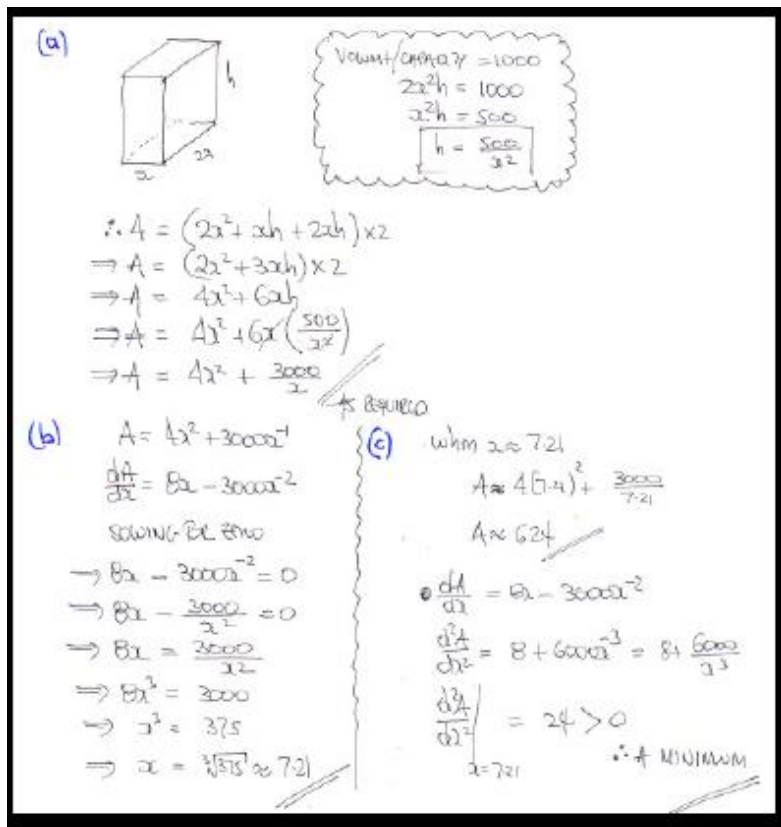 (a)
h
2x
x
VOLUME/CAPACITY = 1000
2x²h = 1000
x²h = 500
h = 500/x²
∴ A = (2x² + xh + 2xh) × 2
⇒ A = (2x² + 3xh) × 2
⇒ A = 4x² + 6xh
⇒ A = 4x² + 6x(500/x²)
⇒ A = 4x² + 3000/x
AS REQUIRED
(b)
A = 4x² + 3000x⁻¹
dA/dx = 8x - 3000x⁻²
SOLVING FOR ZERO
⇒ 8x - 3000x⁻² = 0
⇒ 8x - 3000/x² = 0
⇒ 8x = 3000/x²
⇒ 8x³ = 3000
⇒ x³ = 375
⇒ x = ∛375 ≈ 7.21
(c)
when x ≈ 7.21
A ≈ 4(7.21)² + 3000/7.21
A ≈ 624
• dA/dx = 8x - 3000x⁻²
d²A/dx² = 8 + 6000x⁻³ = 8 + 6000/x³
d²A/dx² | x=7.21 = 24 > 0
∴ A MINIMUM